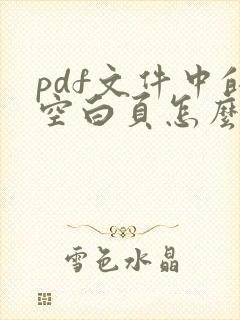 pdf文件中的
空白页怎麼
雪色水晶